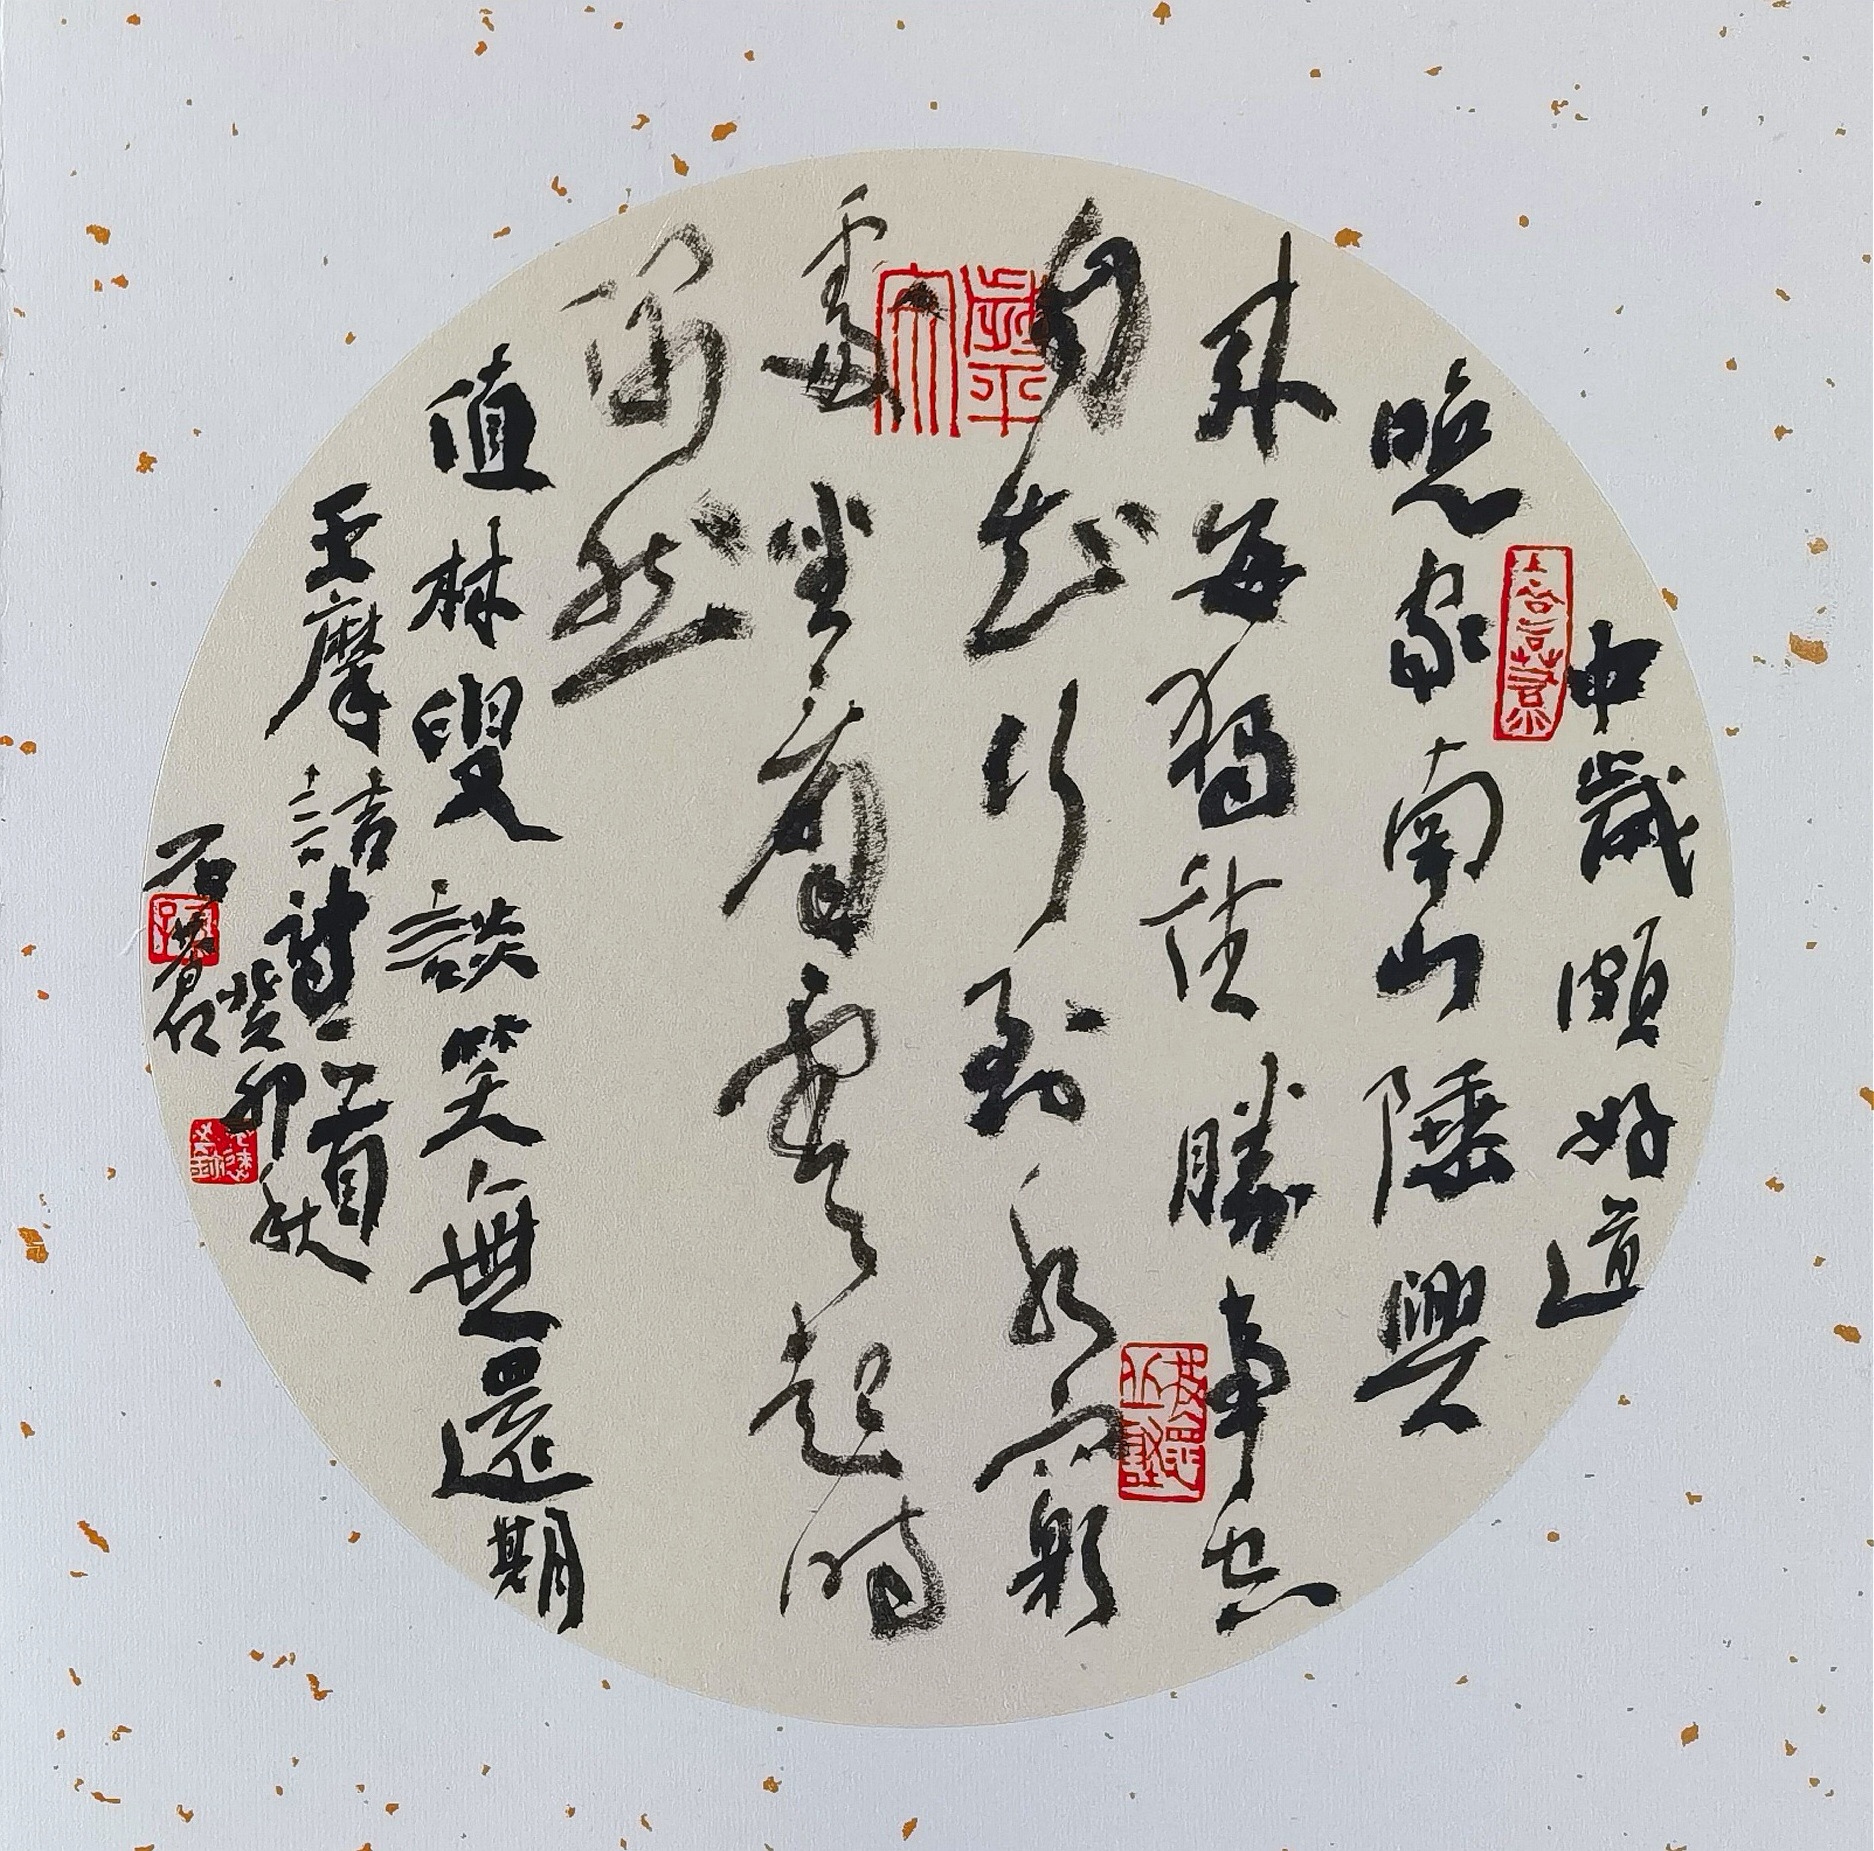 中歲頗好道
晚家南山陲興
來每獨往勝事空
自知行到水窮
處坐看雲起時
偶然
值林叟談笑無還期
王摩詰詩一首
癸卯秋
石